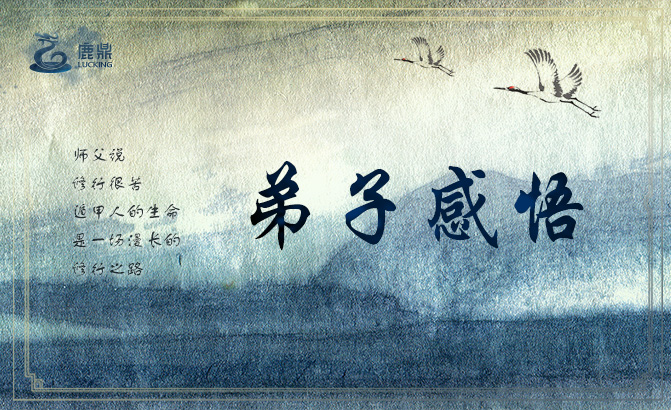 鹿鼎
LUCKING
师父说
修行很苦
遁甲人的生命
是一场漫长的
修行之路
弟子感悟